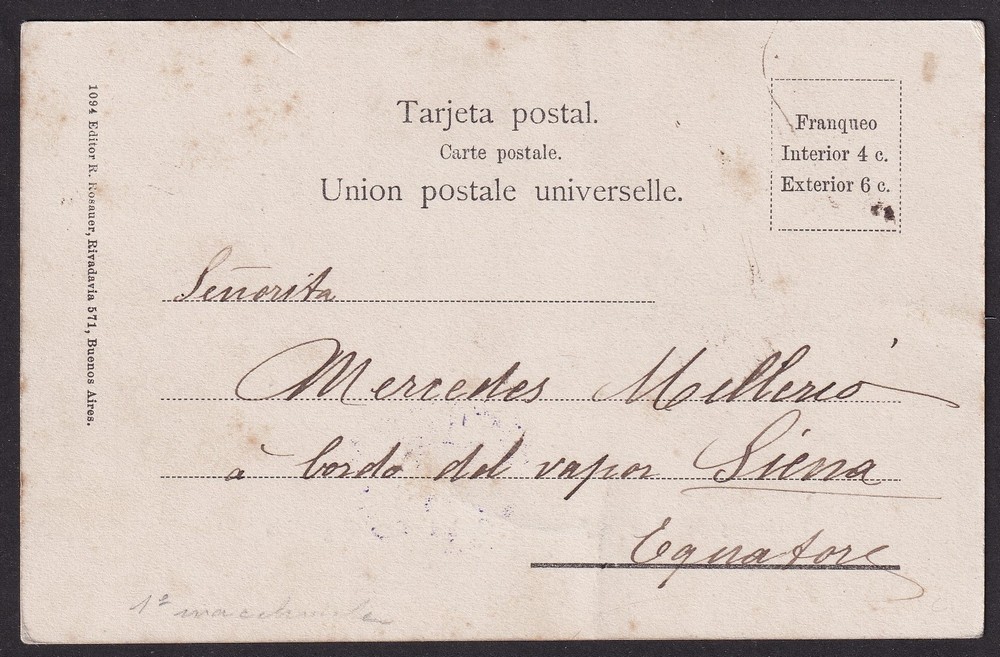 Tarjeta postal.
Carte postale.
Union postale universelle.
Franqueo
Interior 4 c.
Exterior 6 c.
1094 Editor R. Rosauer, Rivadavia 571, Buenos Aires.
Señorita
Mercedes Mellerio
à bordo del vapor Siena
Equatore
1º